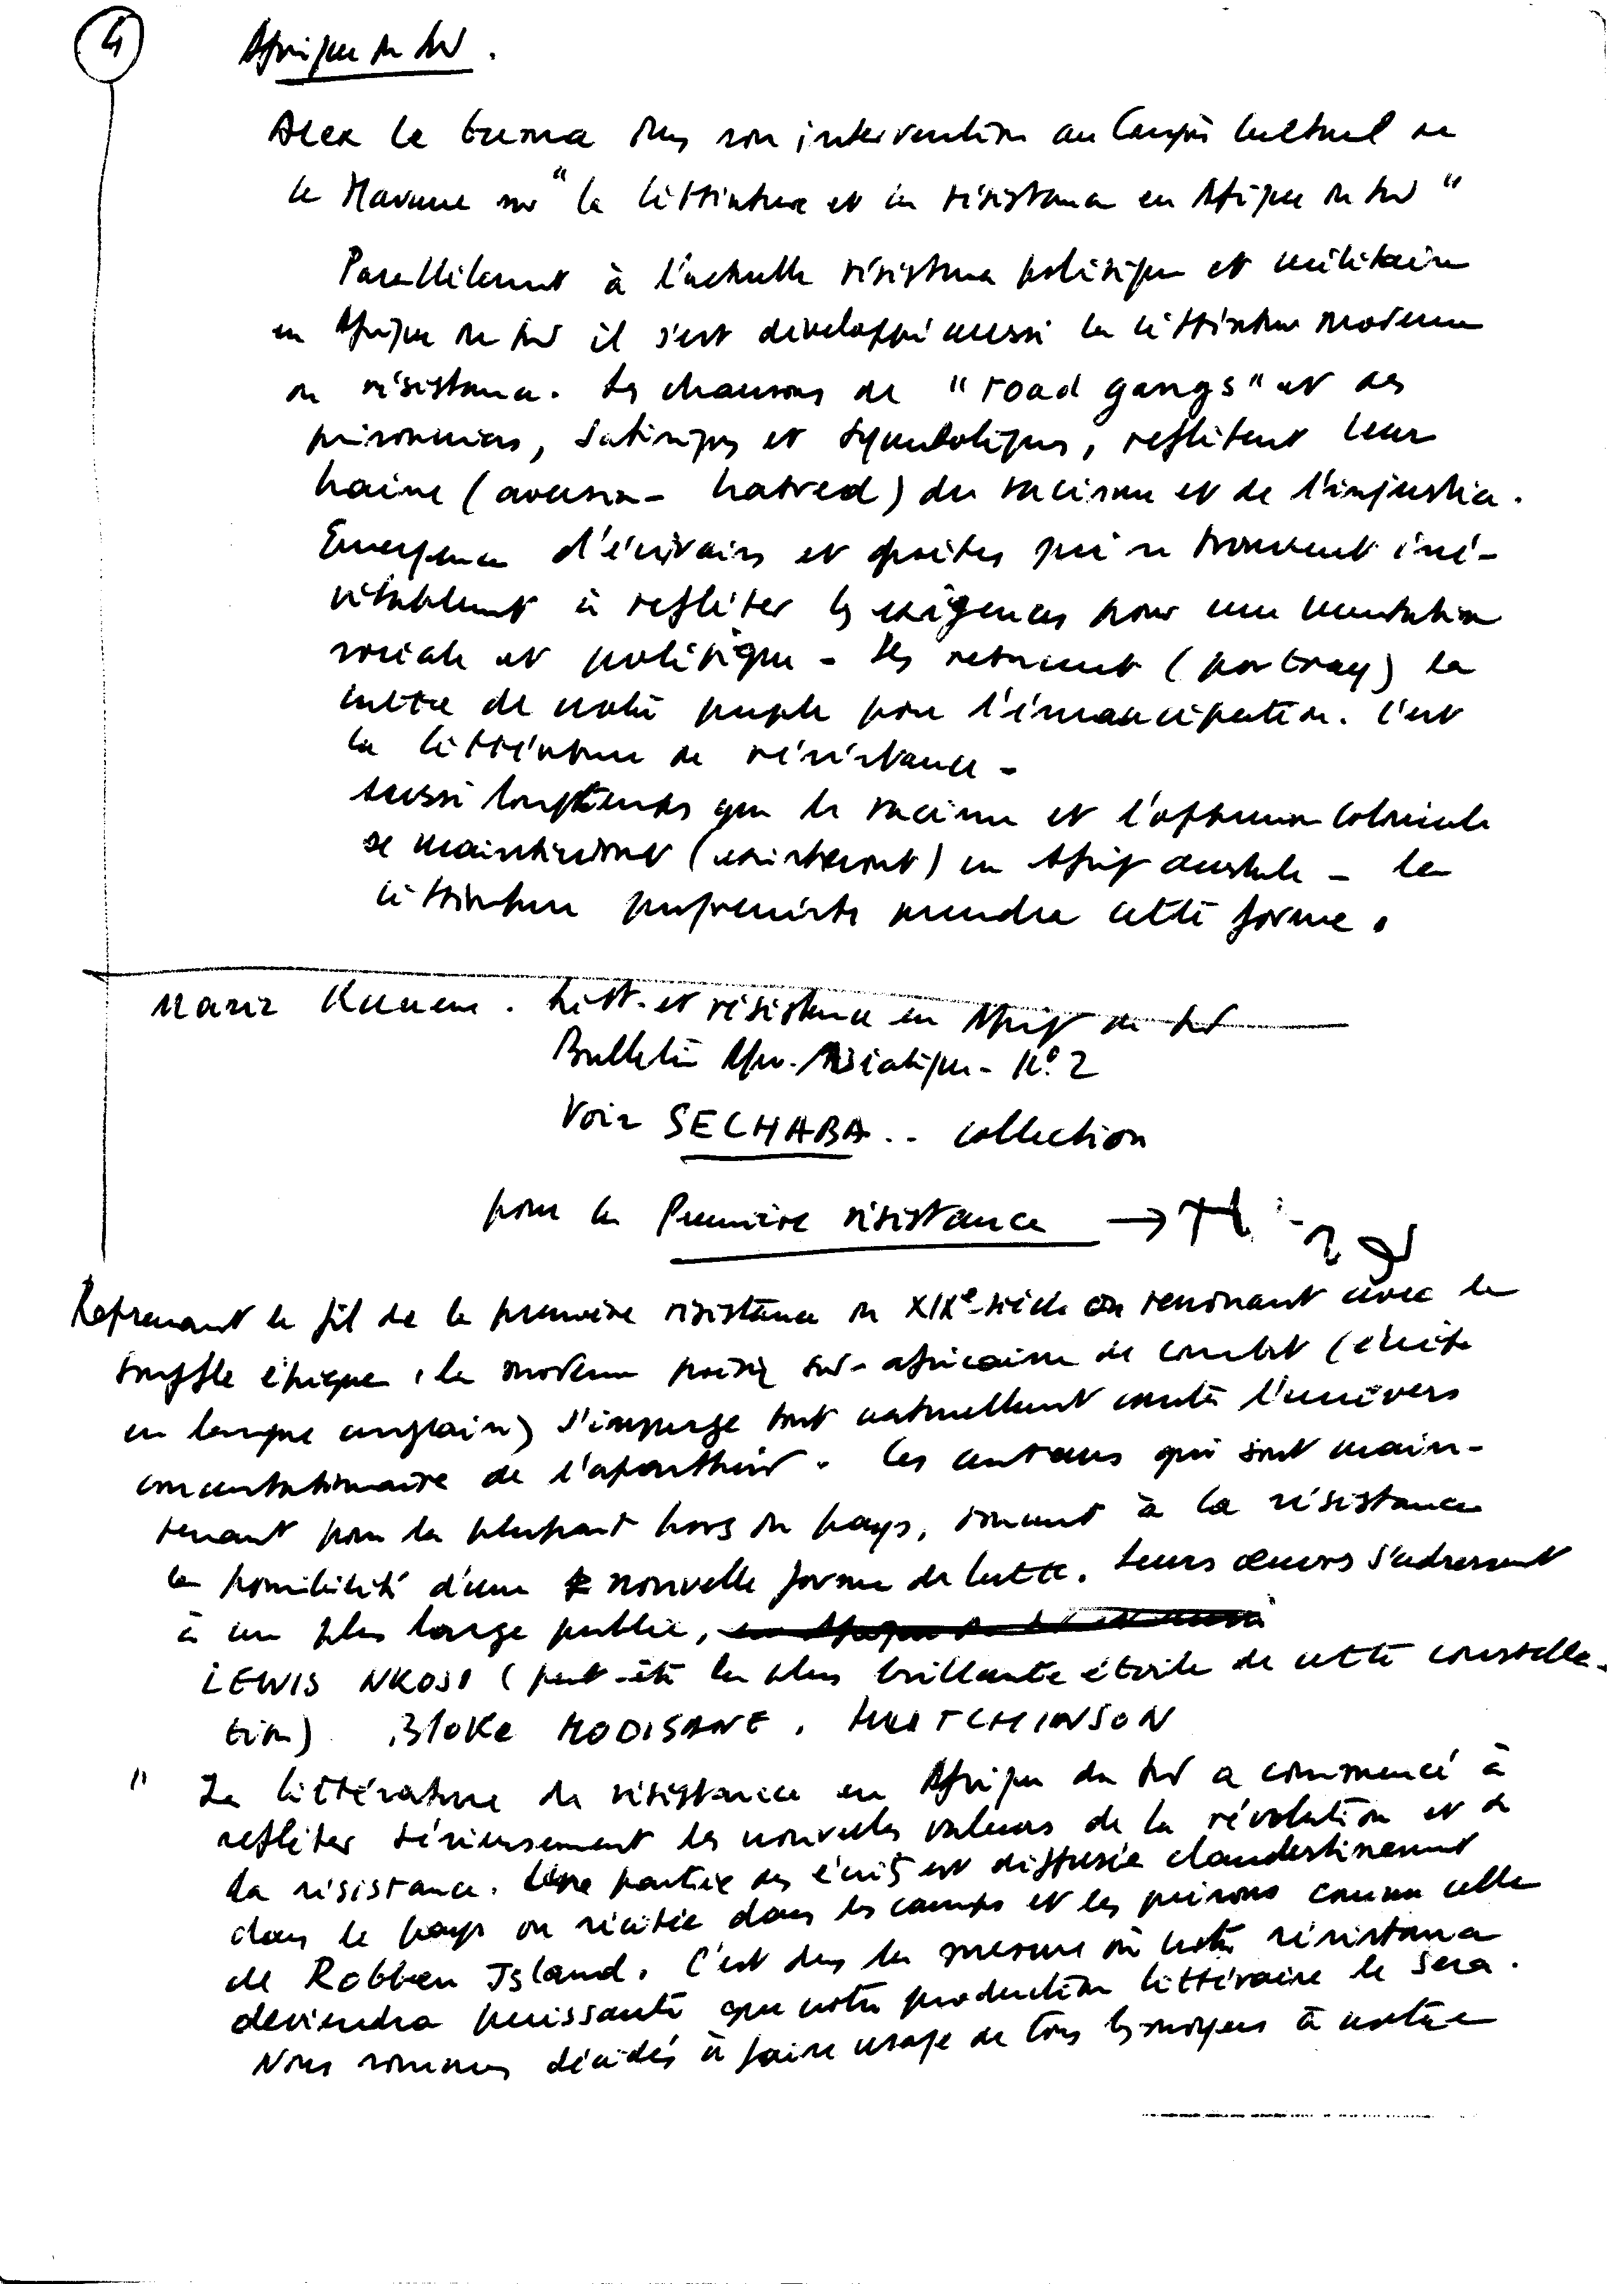 4
Afrique du Sud.
Alex la Guma dans son intervention au Congrès Culturel de
la Havane sur "la littérature et la résistance en Afrique du Sud"
Parallèlement à l'actuelle résistance politique et militaire
en Afrique du Sud il s'est développé aussi la littérature moderne
de résistance. Les chansons de "road gangs" et des
prisonniers, satiriques et symboliques, reflètent leur
haine (aversion - hatred) du racisme et de l'injustice.
Emergence d'écrivains et poètes qui se trouvent iné-
vitablement à refléter les exigences pour une mutation
sociale et politique - Ils retracent (portray) la
lutte de notre peuple pour l'émancipation. C'est
la littérature de résistance -
Aussi longtemps que le racisme et l'oppression coloniale
se maintiendront (existeront) en Afriq australe - la
littérature progressiste prendra cette forme.
Mazizi Kunene. Litt. et résistance en Afriq du Sud
Bulletin Afro-Asiatique - N.º 2
Voir SECHABA .. collection
pour la Première résistance →
Reprenant le fil de la première résistance du XIXe siècle en renouant avec le
souffle épique, la moderne poésie sud-africaine de combat (écrite
en langue anglaise) s'insurge tout naturellement contre l'univers
concentrationnaire de l'apartheid. Ces auteurs qui sont main-
tenant pour la plupart hors du pays, donnent à la résistance
la possibilité d'une nouvelle forme de lutte. Leurs œuvres s'adressent
à un plus large public,
LEWIS NKOSI (peut-être la plus brillante étoile de cette constella-
tion) . BLOKE MODISANE . HUTCHINSON
" La littérature de résistance en Afrique du Sud a commencé à
refléter sérieusement les nouvelles valeurs de la révolution et de
la résistance. Une partie des écrits est diffusée clandestinement
dans le pays ou récitée dans les camps et les prisons comme celle
de Robben Island. C'est dans la mesure où notre résistance
deviendra puissante que notre production littéraire le sera.
Nous sommes décidés à faire usage de tous les moyens à notre